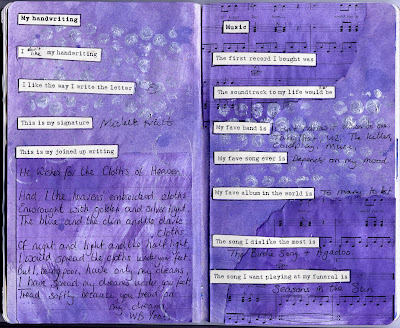 My handwriting
I don't like my handwriting
I like the way I write the letter
This is my signature
This is my joined up writing
He Wishes for the Cloths of Heaven
Had I the heavens embroidered cloths
Enwrought with golden and silver light,
The blue and the dim and the dark
cloths
Of night and light and the half light,
I would spread the cloths under your feet.
But I, being poor, have only my dreams,
I have spread my dreams under your feet,
Tread softly because you tread on
my dreams
WB Yeats
Music
The first record I bought was
The soundtrack to my life would be
My fave band is
U2, The Killers,
Coldplay, Muse
My fave song ever is Depends on my mood
My fave album in the world is To many to list
The song I dislike the most is
The Birdie Song + Agadoo
The song I want playing at my funeral is
Seasons in the Sun